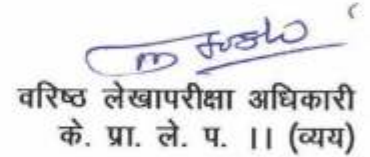 वरिष्ठ लेखापरीक्षा अधिकारी
के. प्रा. ले. प. || (व्यय)